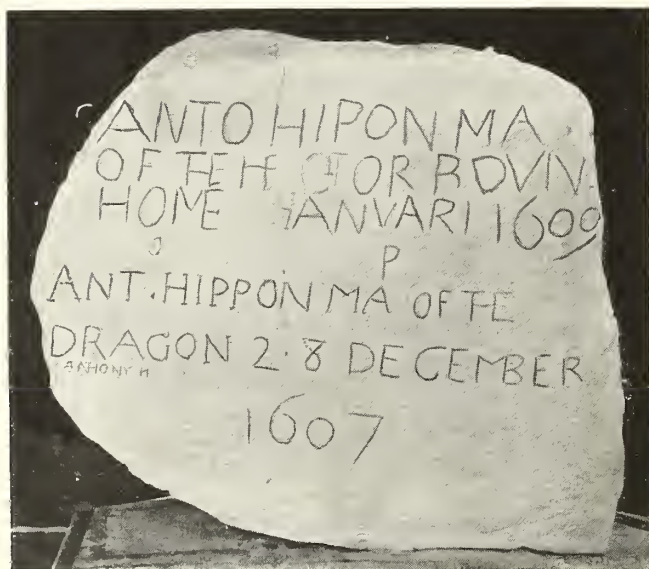 ANTO HIPON MA
OF TE HECTOR BOVN
HOME IANVARI 1609
P
ANT. HIPPON MA OF TE
DRAGON 2·8 DECEMBER
ANTHONY H
1607